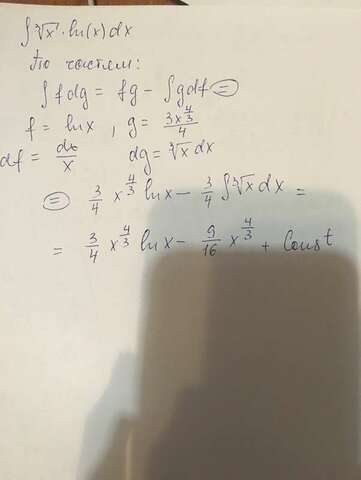 ∫ ∛x · ln(x) dx
По частям:
∫ f dg = fg − ∫ g df ⊜
f = ln x , g = 3x^(4/3)/4
df = dx/x dg = ∛x dx
⊜ 3/4 x^(4/3) ln x − 3/4 ∫ ∛x dx =
= 3/4 x^(4/3) ln x − 9/16 x^(4/3) + Const